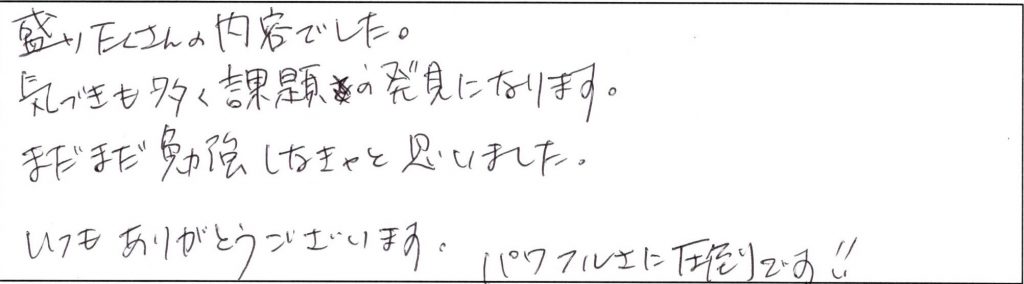 盛りだくさんの内容でした。
気づきも多く課題の発見になります。
まだまだ勉強しなきゃと思いました。
いつもありがとうございます。
パワフルさに圧倒です!!